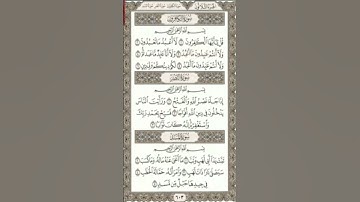 سورة الكافرون
بسم الله الرحمن الرحيم
قل يا أيها الكافرون ۝١ لا أعبد ما تعبدون ۝٢
ولا أنتم عابدون ما أعبد ۝٣ ولا أنا عابد ما عبدتم ۝٤
ولا أنتم عابدون ما أعبد ۝٥ لكم دينكم ولي دين ۝٦
سورة النصر
بسم الله الرحمن الرحيم
إذا جاء نصر الله والفتح ۝١ ورأيت الناس
يدخلون في دين الله أفواجا ۝٢ فسبح بحمد ربك
واستغفره إنه كان توابا ۝٣
سورة المسد
بسم الله الرحمن الرحيم
تبت يدا أبي لهب وتب ۝١ ما أغنى عنه ماله وما كسب ۝٢
سيصلى نارا ذات لهب ۝٣ وامرأته حمالة الحطب ۝٤
في جيدها حبل من مسد ۝٥
٦٠٣